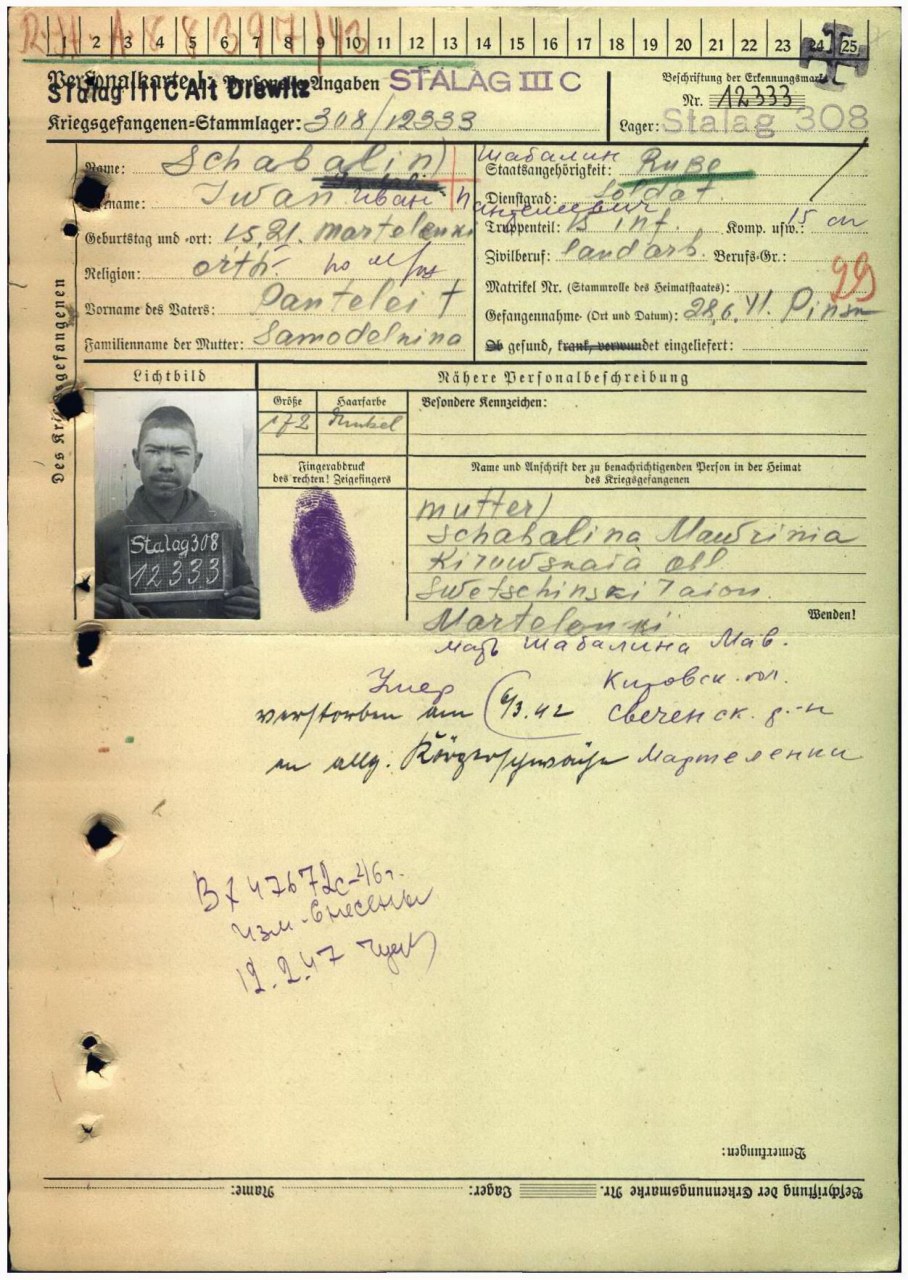 R.H. A 88397/43
1 2 3 4 5 6 7 8 9 10 11 12 13 14 15 16 17 18 19 20 21 22 23 24 25
Personalkarte I: Personelle Angaben STALAG III C
Stalag III C Alt Drewitz
Kriegsgefangenen-Stammlager: 308/12333
Beschriftung der Erkennungsmarke
Nr. 12333
Lager: Stalag 308
Des Kriegsgefangenen
Name: Schabalin
Vorname: Iwan Иван Пантелеевич
Geburtstag und -ort: 15, 21. Martelenki
Religion: orth.
Vorname des Vaters: Pantelei †
Familienname der Mutter: Samodelnina
Шабалин
Staatsangehörigkeit: Ruße
Dienstgrad: Soldat
Truppenteil: 13 inf. Komp. usw.: 15
Zivilberuf: landarb. Berufs-Gr.:
29
Matrikel Nr. (Stammrolle des Heimatstaates):
Gefangennahme (Ort und Datum): 28.6.41. Pinsk
Ob gesund, krank, verwundet eingeliefert:
Lichtbild
Nähere Personalbeschreibung
Größe Haarfarbe Besondere Kennzeichen:
172 dunkel
Stalag 308
12333
Fingerabdruck
des rechten! Zeigefingers
Name und Anschrift der zu benachrichtigenden Person in der Heimat
des Kriegsgefangenen
Mutter
Schabalina Mawrinia
Kirowskaia obl
Swetschinski raion.
Martelenki
Wenden!
мать Шабалина Мав.
Кировск. обл.
Свеченск. р-н
Мартеленки
Умер
verstorben am 6/3.42
an allg. Körperschwäche
Вх 47672с-46г.
изм. внесены
12.2.47
Bemerkungen:
Beschriftung der Erkennungsmarke Nr. Lager: Name: